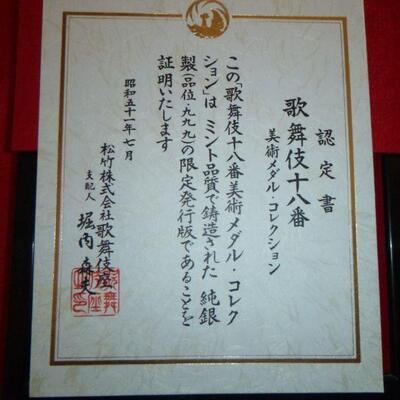 認定書
歌舞伎十八番
美術メダル・コレクション
この「歌舞伎十八番美術メダル・コレク
ション」は ミント品質で鋳造された 純銀
製(品位・九九九)の限定発行版であることを
証明いたします
昭和五十一年七月
松竹株式会社歌舞伎座
支配人 堀内森夫